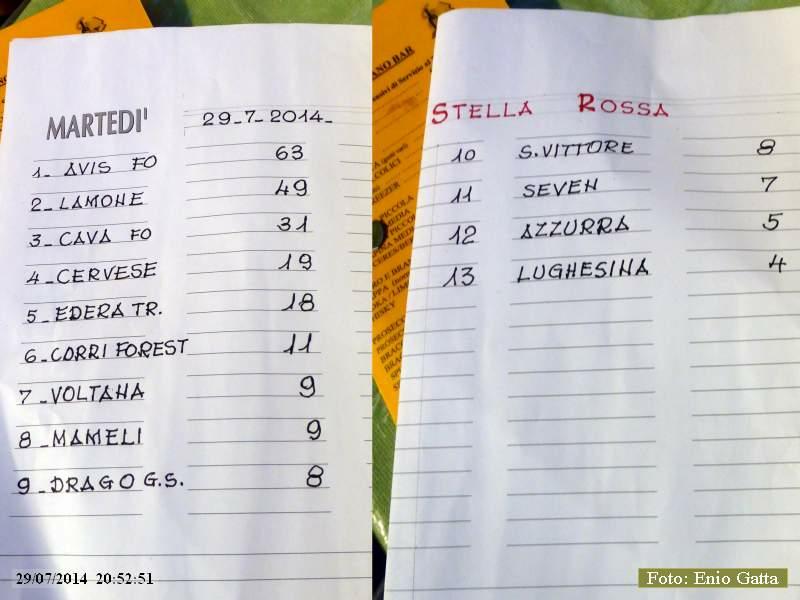 MARTEDI' 29-7-2014-
1- AVIS FO 63
2- LAMONE 49
3- CAVA FO 31
4- CERVESE 19
5- EDERA TR. 18
6- CORRI FOREST 11
7- VOLTANA 9
8- MAMELI 9
9- DRAGO G.S. 8
29/07/2014 20:52:51
ANO BAR
STELLA ROSSA
10 S.VITTORE 8
11 SEVEN 7
12 AZZURRA 5
13 LUGHESINA 4
PICCOLA
MEDIA
PROSECCO
Foto: Enio Gatta